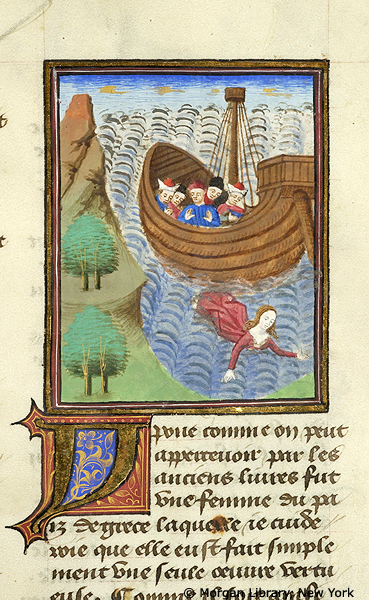 Ypone comme on peut
apperceuoir par les
anciens liures fut
vne femme du pa
iz de grece laquelle ie cuide
roie que elle eust fait simple
ment vne seule oeuure vertu
euse. Comme
© Morgan Library, New York